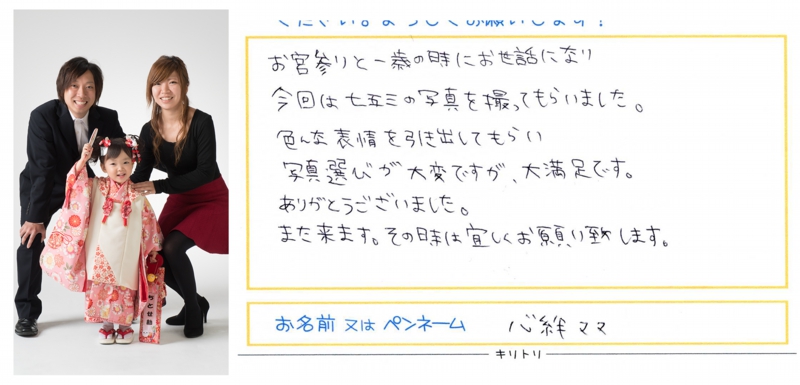 ください。よろしくお願いします！
お宮参りと一歳の時にお世話になり
今回は七五三の写真を撮ってもらいました。
色んな表情を引き出してもらい
写真選びが大変ですが、大満足です。
ありがとうございました。
また来ます。その時は宜しくお願い致します。
お名前 又は ペンネーム 心絆ママ
キリトリ
ちとせ飴